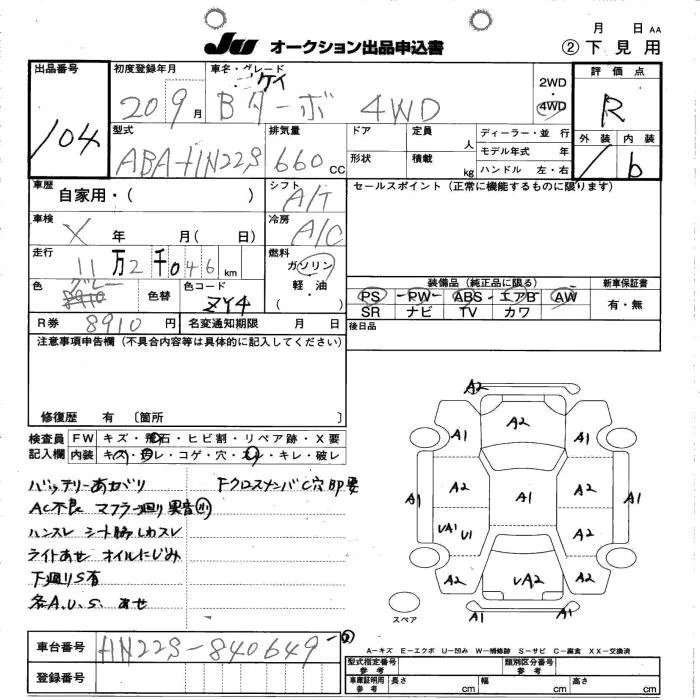 月 日 AA
JU オークション出品申込書 ②下見用
出品番号 104
初度登録年月 20 9月
車名・グレード ケイ Bターボ 4WD
2WD・4WD
評価点 R
外装 内装 b
型式 ABA-HN22S
排気量 660 cc
ドア 形状
定員 人
積載 kg
ディーラー・並行
モデル年式 年
ハンドル 左・右
車歴 自家用・( )
シフト A/T
セールスポイント(正常に機能するものに限ります)
車検 X 年 月( 日)
冷房 A/C
走行 11万2千046km
燃料 ガソリン・軽油・( )
色 グレー 8910
色替
色コード ZY4
装備品(純正品に限る)
PS PW ABS エアB AW
SR ナビ TV カワ
新車保証書 有・無
R券 8910円
名変通知期限 月 日
後日品
注意事項申告欄(不具合内容等は具体的に記入してください)
修復歴 有 〔箇所 〕
検査員記入欄
FW キズ・飛石・ヒビ割・リペア跡・X要
内装 キズ・ヨゴレ・コゲ・穴・スレ・キレ・破レ
バッテリーあがり FクロスメンバC穴BP要
AC不良 マフラー廻り異音小
ハンスレ シート脇しわスレ
ライトあせ オイルにじみ
下廻りS有
各A.U.S. あせ
A2
A1 A2 A1
A1 A2 A1 A2 A1
UA1 U1 A2
A2 UA2 A2
A1 A1
スペア
車台番号 HN22S-840649
登録番号
A-キズ E-エクボ U-凹み W-補修跡 S-サビ C-腐食 XX-交換済
型式指定番号 参考
類別区分番号 参考
車庫証明用 参考 長さ cm 幅 cm 高さ cm